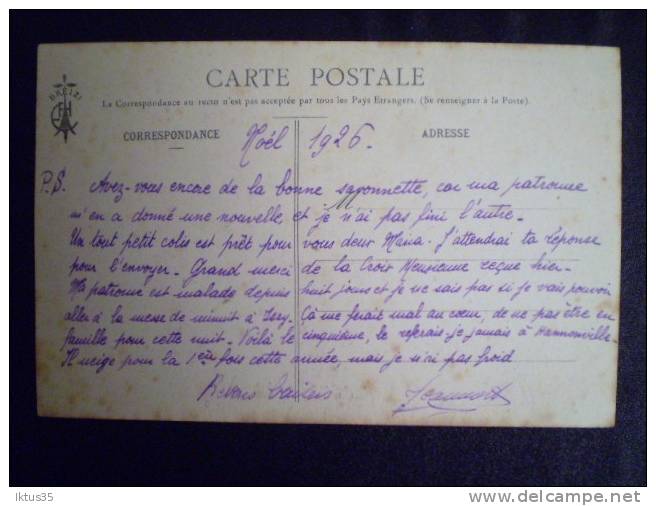 BREIZH
CARTE POSTALE
La Correspondance au recto n'est pas acceptée par tous les Pays Etrangers. (Se renseigner à la Poste).
CORRESPONDANCE
ADRESSE
Noël 1926.
P.S. Avez-vous encore de la bonne savonnette, car ma patronne
m'en a donné une nouvelle, et je n'ai pas fini l'autre.
Un tout petit colis est prêt pour vous deux Maria. J'attendrai ta réponse
pour l'envoyer. Grand merci de la Croix Meusienne reçue hier.
Ma patronne est malade depuis huit jours et je ne sais pas si je vais pouvoir
aller à la messe de minuit à Issy. Ça me ferait mal au cœur, de ne pas être en
famille pour cette nuit. Voilà le cinquième, le referais je jamais à Hannonville.
Il neige pour la 1ère fois cette année, mais je n'ai pas froid
Bons baisers
iktus35
http://www.delcampe.net